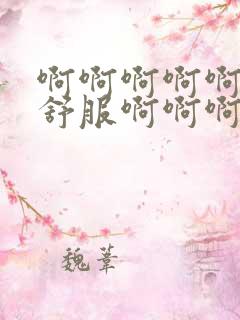 啊啊啊啊啊
舒服啊啊啊
魏苇